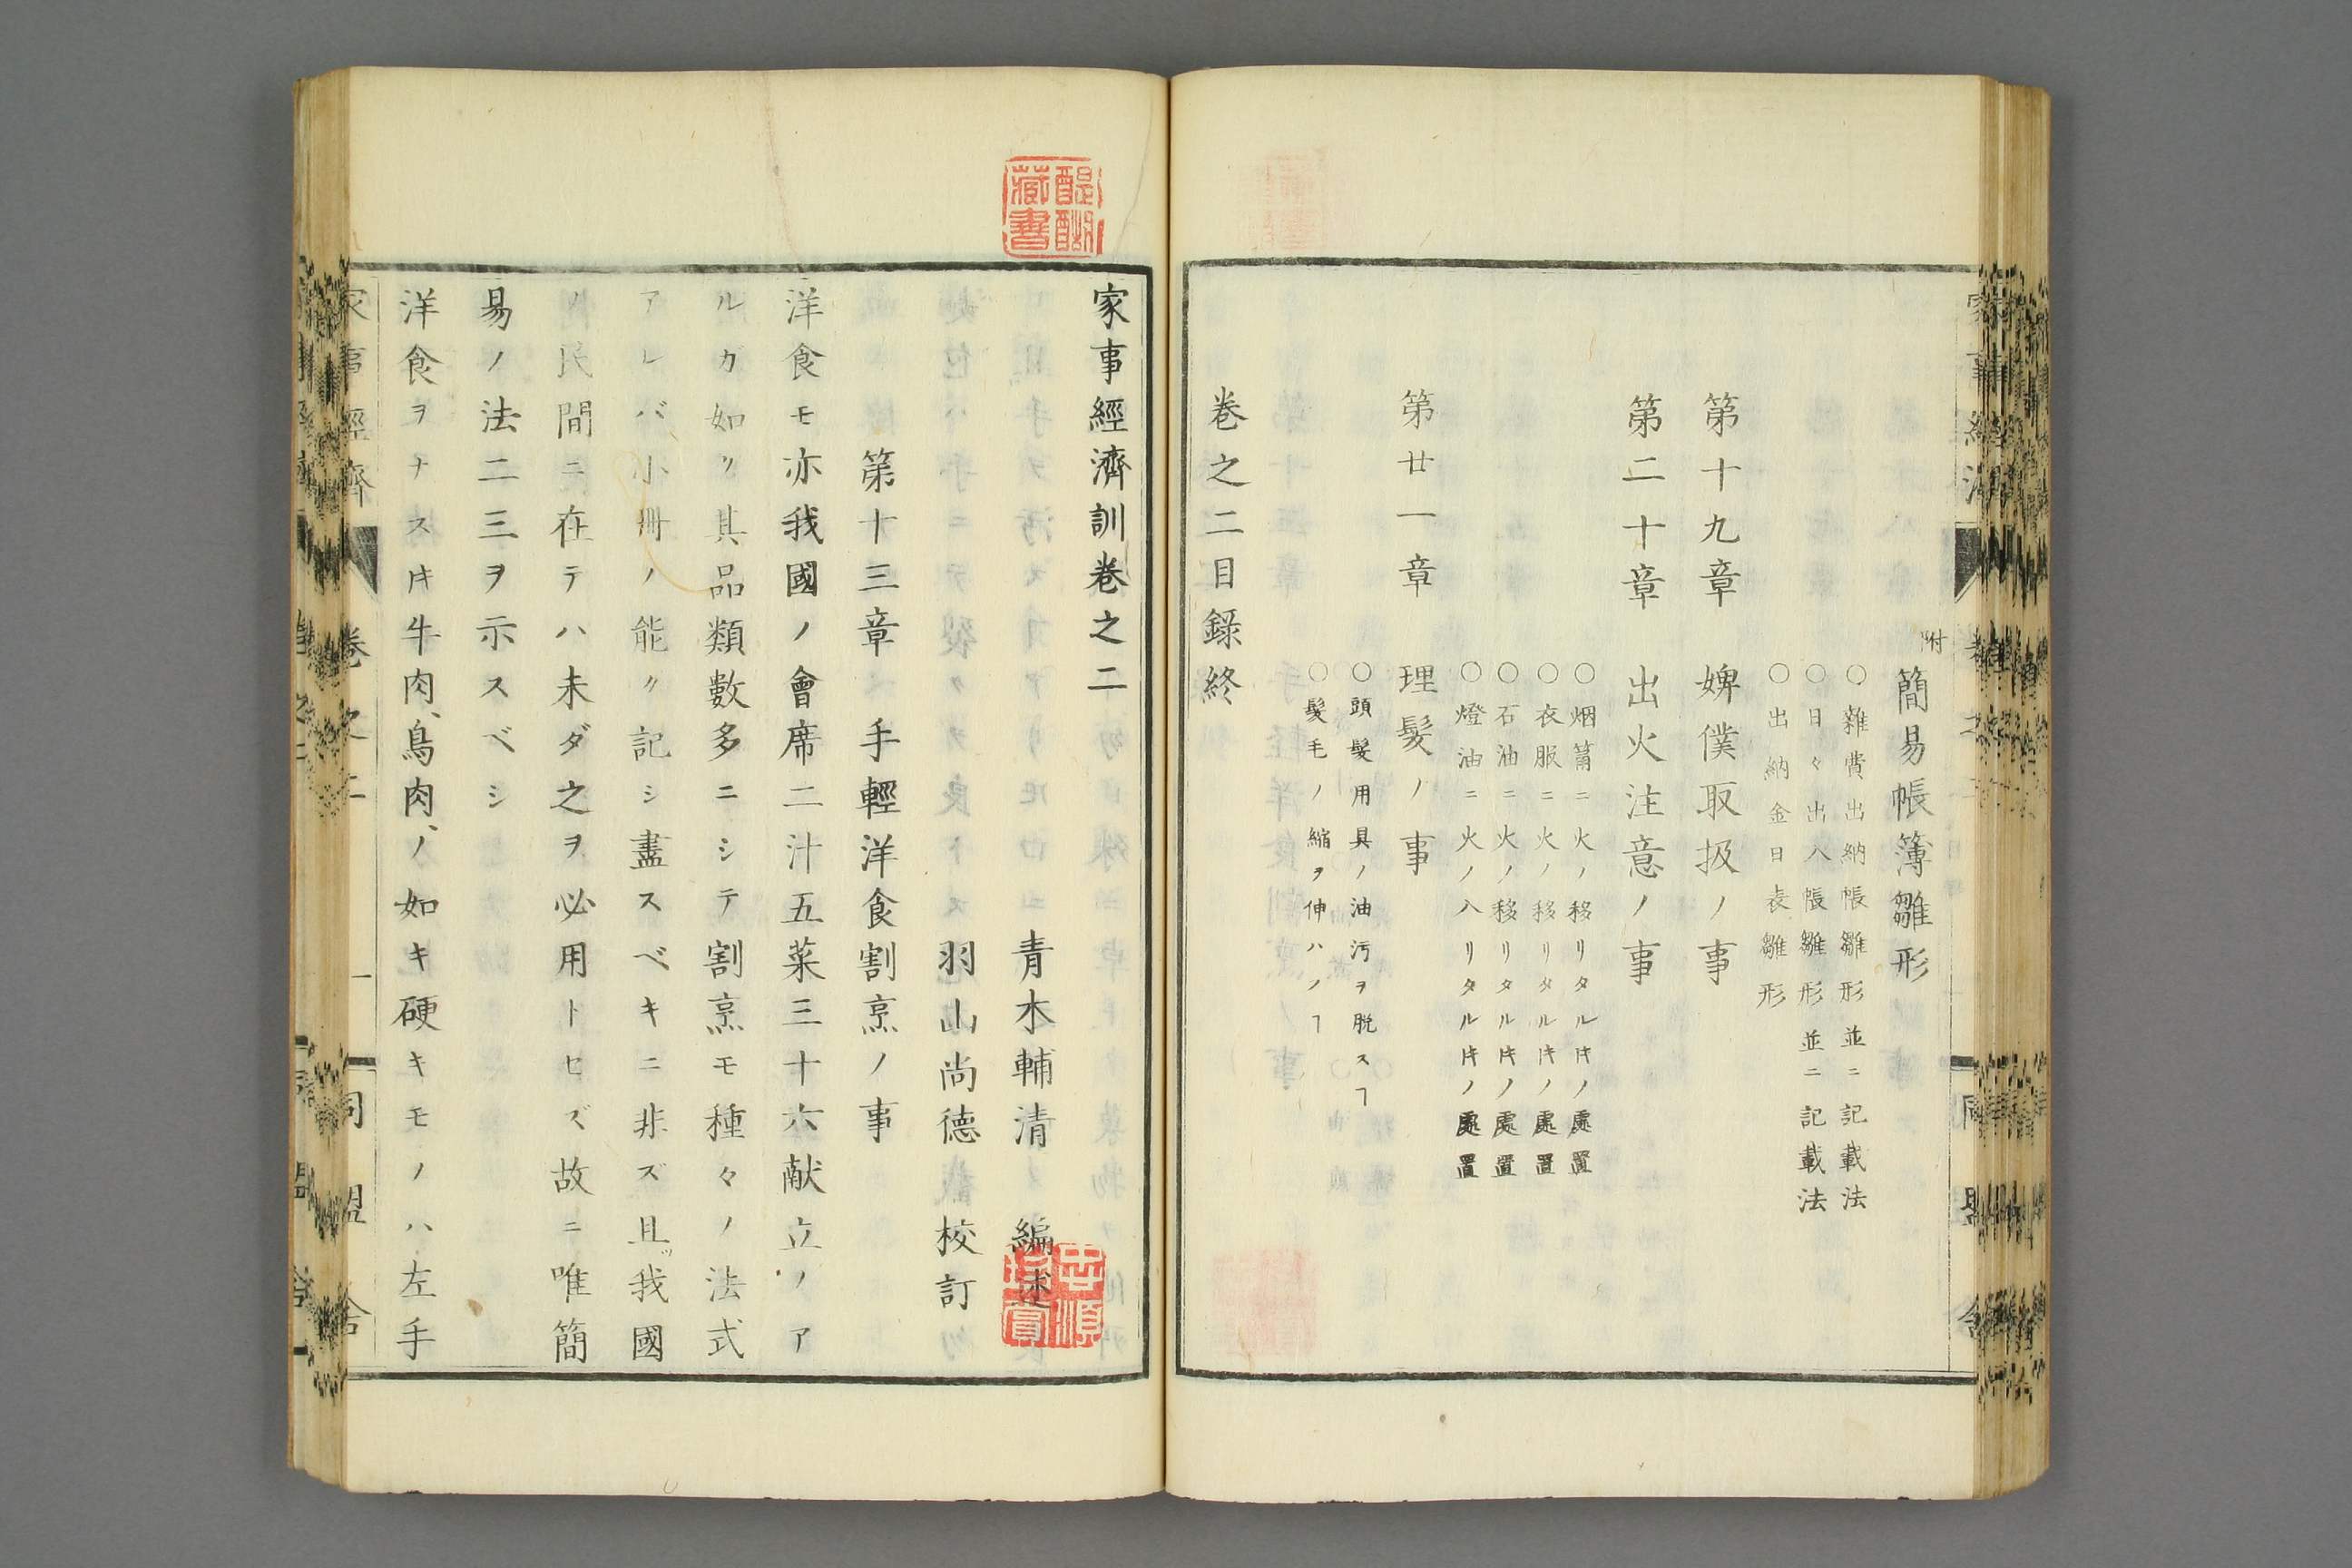 附
簡易帳簿雛形
○雜費出納帳雛形並ニ記載法
○日々出入帳雛形並ニ記載法
○出納金日表雛形
第十九章 婢僕取扱ノ事
第二十章 出火注意ノ事
○烟筩ニ火ノ移リタルキノ處置
○衣服ニ火ノ移リタルキノ處置
○石油ニ火ノ移リタルキノ處置
○燈油ニ火ノ入リタルキノ處置
第廿一章 理髮ノ事
○頭髮用具ノ油汚ヲ脱スヿ
○髮毛ノ縮ヲ伸ハノヿ
卷之二目錄終
醍醐藏書
家事經濟訓卷之二
青木輔清 編述
羽山尚德 校訂
第十三章 手輕洋食割烹ノ事
洋食モ亦我國ノ會席二汁五菜三十六献立ノア
ルガ如ク其品類數多ニシテ割烹モ種々ノ法式
アレバ小冊ノ能ク記シ盡スベキニ非ズ且ツ我國
ノ民間ニ在テハ未ダ之ヲ必用トセズ故ニ唯簡
易ノ法二三ヲ示スベシ
洋食ヲナスキ牛肉、鳥肉、ノ如キ硬キモノハ左手
家事經濟 卷之二 一 同盟舍